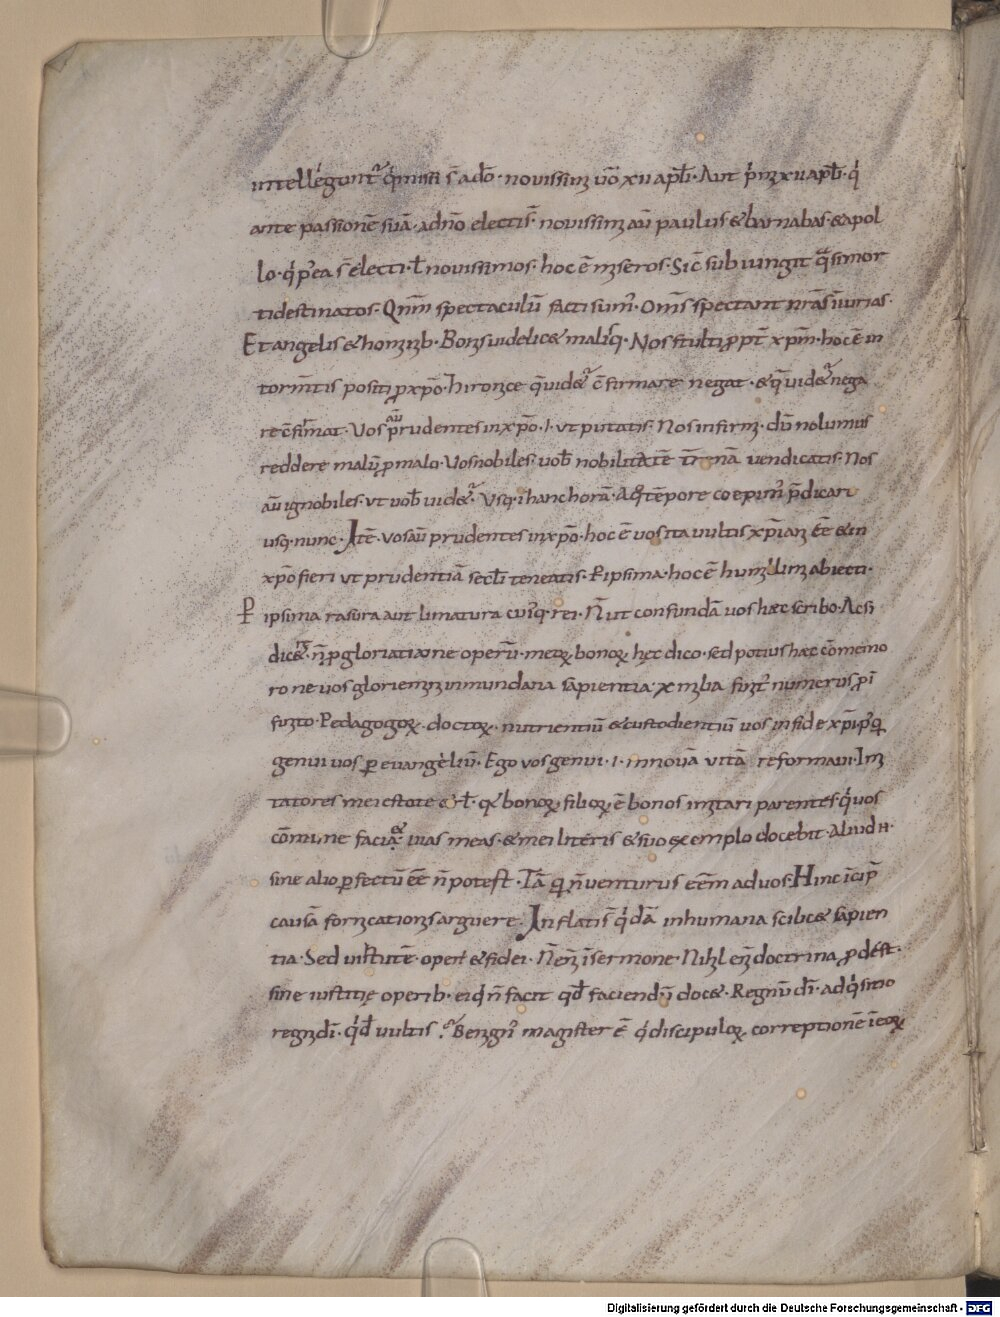 intelleguntᷣ qͥ missi s̄ ado̅· novissim uo̅ xıı apłi· Aut pͥm xıı apłi· qͥ
ante passione̅ sua̅· adn̅o electis̅· novissim au̅ paulus & barnabas· & apol
lo· qͥ p̾ea s̄ electi· ł novissimos· hoc e̅ miseros· Sic̅ subiungit qͣsi mor
ti destinatos· Qn̅m spectaculu̅ facti sum᷒· Om̅s spectant nr̅as iniurias·
Et angelis & hominib· Bonis videlic& malisq· Nos stulti ꝓpt̅ xp̅m· hoc e̅ in
torm̅tis positi ꝓ xp̅o· hironice q̅ uid&ᷣ c̅firmare negat· & q̅ uid&ᷣ nega
re c̅firmat· Vos au̅ prudentes in xp̅o· ı· ut putatis· Nos infirmi· du̅ nolumus
reddere malu̅ ꝓ malo· Vos nobiles· uob̅ nobilitate̅ t̅rena̅ uendicatis· Nos
au̅ ignobiles· ut uob̅ uid&ᷣ· Vsq· i̅ hanc hora̅· A qͦ te̅pore coepim᷒ p̅dicari
usq· nunc· Ite̅· Vos au̅ prudentes in xp̅o· hoc e̅ uos ita uultis xp̅iani e̅e̅ & in
xp̅o fieri ut prudentia̅ secl̅i teneatis· Peripsima· hoc e̅ humillimi abiecti·
Peripsima rasura aut limatura cui᷒q· rei· N̅ ut confunda̅ uos haec scribo· Acsi
dic&ᷣ· n̅ ꝓ gloriatione operu̅· meoꝝ bonoꝝ hęc dico· sed potius haec co̅meino
ro ne uos gloriemini in mundana sapientia· x milia finit᷒ numerus ꝓ i̅
finito· Pedagogoꝝ· doctoꝝ· nutrientiu̅ & custodientiu̅ uos in fide xp̅i· ip̾e qͥ
genui uos ꝑ evangeliu̅· Ego vos genui· ı· in nova̅ vita̅ reformavi· Imi
tatores mei estote &ł· qͥ bonoꝝ filioꝝ e̅ bonos imitari parentes· qͥ uos
co̅mune faciaᷣ· uias meas· & mei literis & suo exemplo docebit· Aliud n̅·
sine alio ꝑfectu̅ e̅e̅ n̅ potest· Ta̅ qͣ n̅ venturus e̅e̅m ad uos· Hinc i̅cip̅
causa̅ fornicationis arguere· Inflati s̅ qͥda̅ in humana scilic& sapien
tia· Sed uirtute̅· operi & fidei· N̅ eni̅ i̅ sermone· Nihil eni̅ doctrina ꝓdest·
sine iustitię operib· ei q n̅ facit qd̅ faciendu̅ doc&· Regnu̅ di̅· adqͥsitio
regni di̅· qͥd uultis ? Benign᷒ magister e̅ qͥ discipuloꝝ correptione̅ i̅ eoꝝ
Digitalisierung gefördert durch die Deutsche Forschungsgemeinschaft - DFG